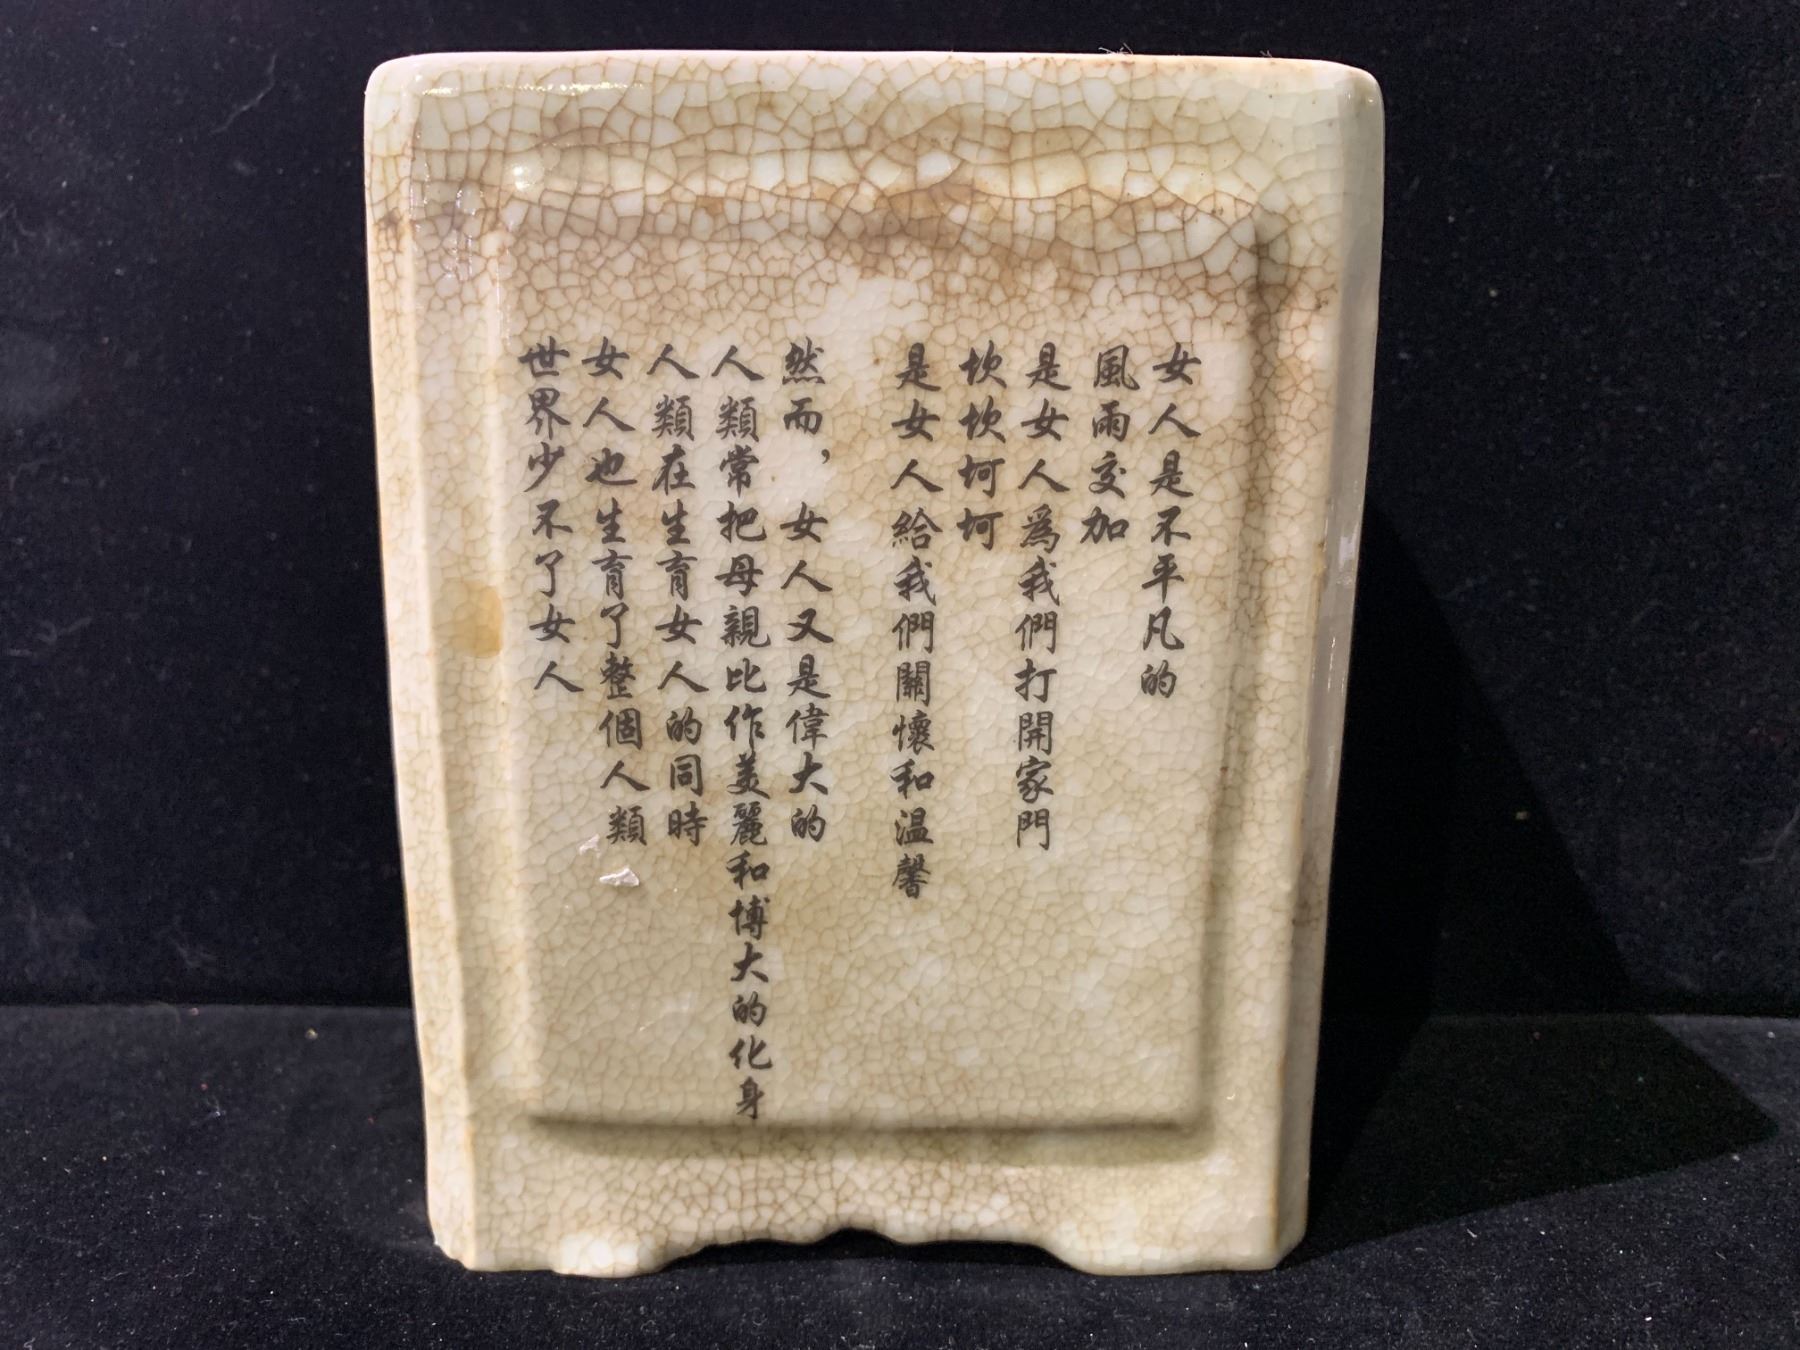 女人是不平凡的
風雨交加
是女人爲我們打開家門
坎坎坷坷
是女人給我們關懷和温馨
然而，女人又是偉大的
人類常把母親比作美麗和博大的化身
人類在生育女人的同時
女人也生育了整個人類
世界少不了女人